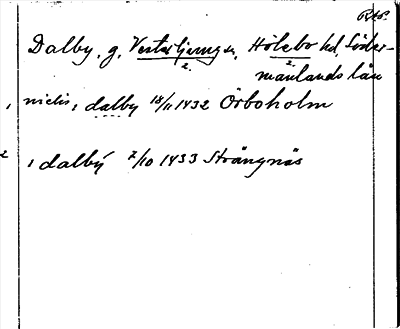 Rtp.
Dalby, g, Vesterljung sn, Hölebo hd, Söder-
2. 2.
manlands län
, nielis, dalby 18/11 1432 Örboholm
2 , dalbÿ 7/10 1433 Strängnäs